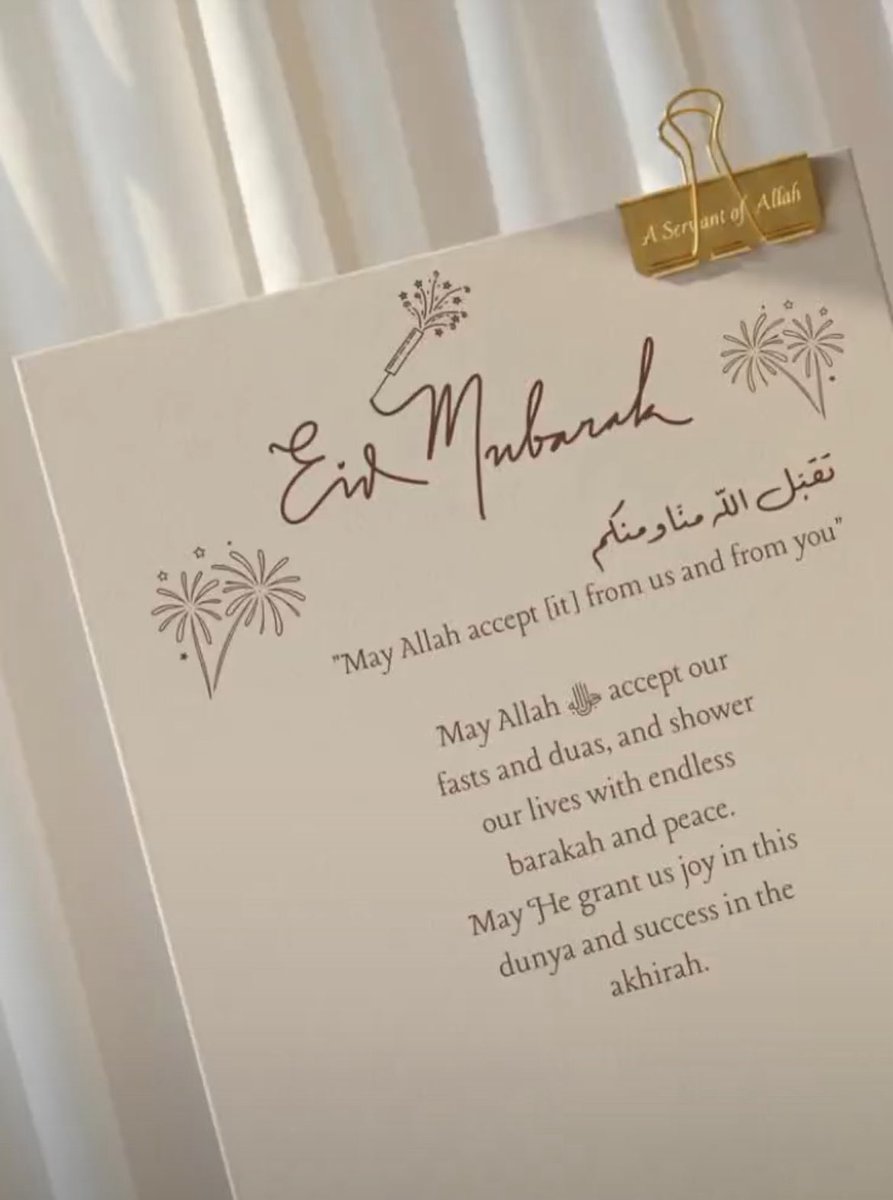 A Servant of Allah
Eid Mubarak
تقبل الله منا ومنكم
"May Allah accept [it] from us and from you"
May Allah ﷻ accept our
fasts and duas, and shower
our lives with endless
barakah and peace.
May He grant us joy in this
dunya and success in the
akhirah.